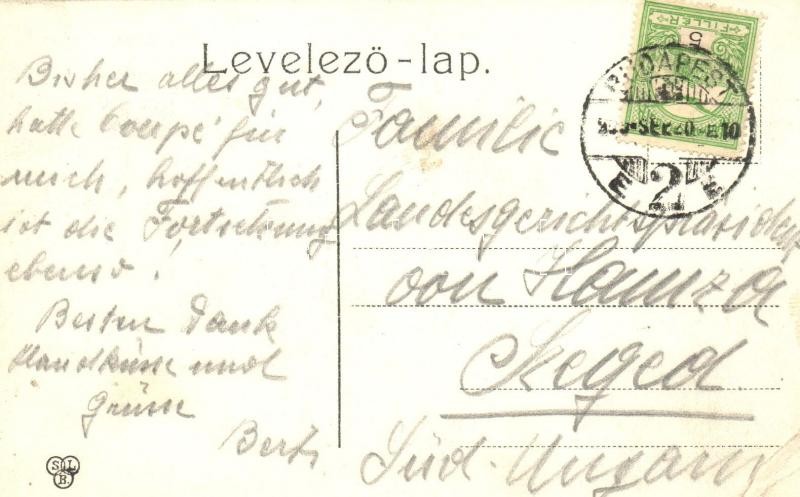 Levelezö-lap.
Bisher alles gut,
hatte Coupé für
mich, hoffentlich
ist die Fortsetzung
ebenso!
Besten Dank
Handküsse und
Grüsse
Bertz
Familie
Landesgerichtspräsident
von Hamza
Szeged.
Süd-Ungarn
FILLÉR
5
BUDAPEST
SEP 20
2
SL
B.